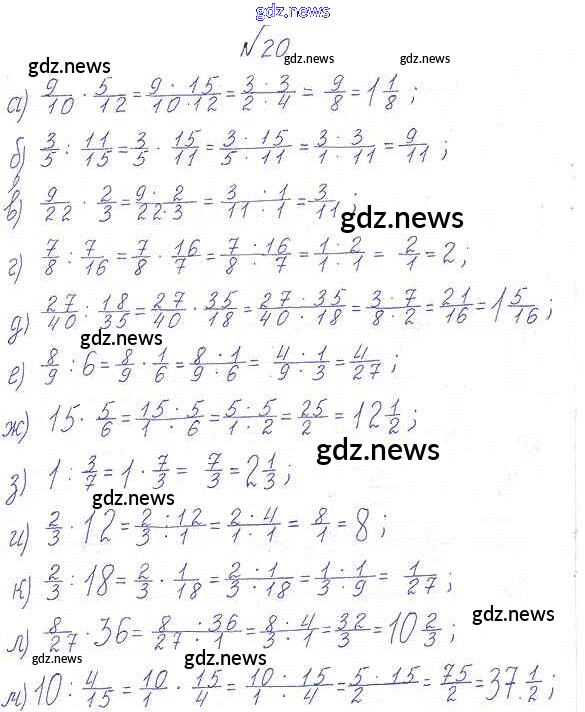 gdz.news
№20
gdz.news gdz.news gdz.news
а) 9/10 · 5/12 = 9 · 15/10 · 12 = 3 · 3/2 · 4 = 9/8 = 1 1/8 ;
б) 3/5 : 11/15 = 3/5 · 15/11 = 3 · 15/5 · 11 = 3 · 3/1 · 11 = 9/11 ;
в) 9/22 · 2/3 = 9 · 2/22 · 3 = 3 · 1/11 · 1 = 3/11 ;
gdz.news
г) 7/8 : 7/16 = 7/8 · 16/7 = 7 · 16/8 · 7 = 1 · 2/1 · 1 = 2/1 = 2 ;
д) 27/40 : 18/35 = 27/40 · 35/18 = 27 · 35/40 · 18 = 3 · 7/8 · 2 = 21/16 = 1 5/16 ;
gdz.news
е) 8/9 : 6 = 8/9 · 1/6 = 8 · 1/9 · 6 = 4 · 1/9 · 3 = 4/27 ;
ж) 15 · 5/6 = 15 · 5/1 · 6 = 5 · 5/1 · 2 = 25/2 = 12 1/2 ;
gdz.news
з) 1 : 3/7 = 1 · 7/3 = 7/3 = 2 1/3 ;
gdz.news
и) 2/3 · 12 = 2 · 12/3 · 1 = 2 · 4/1 · 1 = 8/1 = 8 ;
к) 2/3 : 18 = 2/3 · 1/18 = 2 · 1/3 · 18 = 1 · 1/3 · 9 = 1/27 ;
gdz.news
л) 8/27 · 36 = 8 · 36/27 · 1 = 8 · 4/3 · 1 = 32/3 = 10 2/3 ;
gdz.news gdz.news
м) 10 : 4/15 = 10/1 · 15/4 = 10 · 15/1 · 4 = 5 · 15/2 = 75/2 = 37 1/2 ;
gdz.news